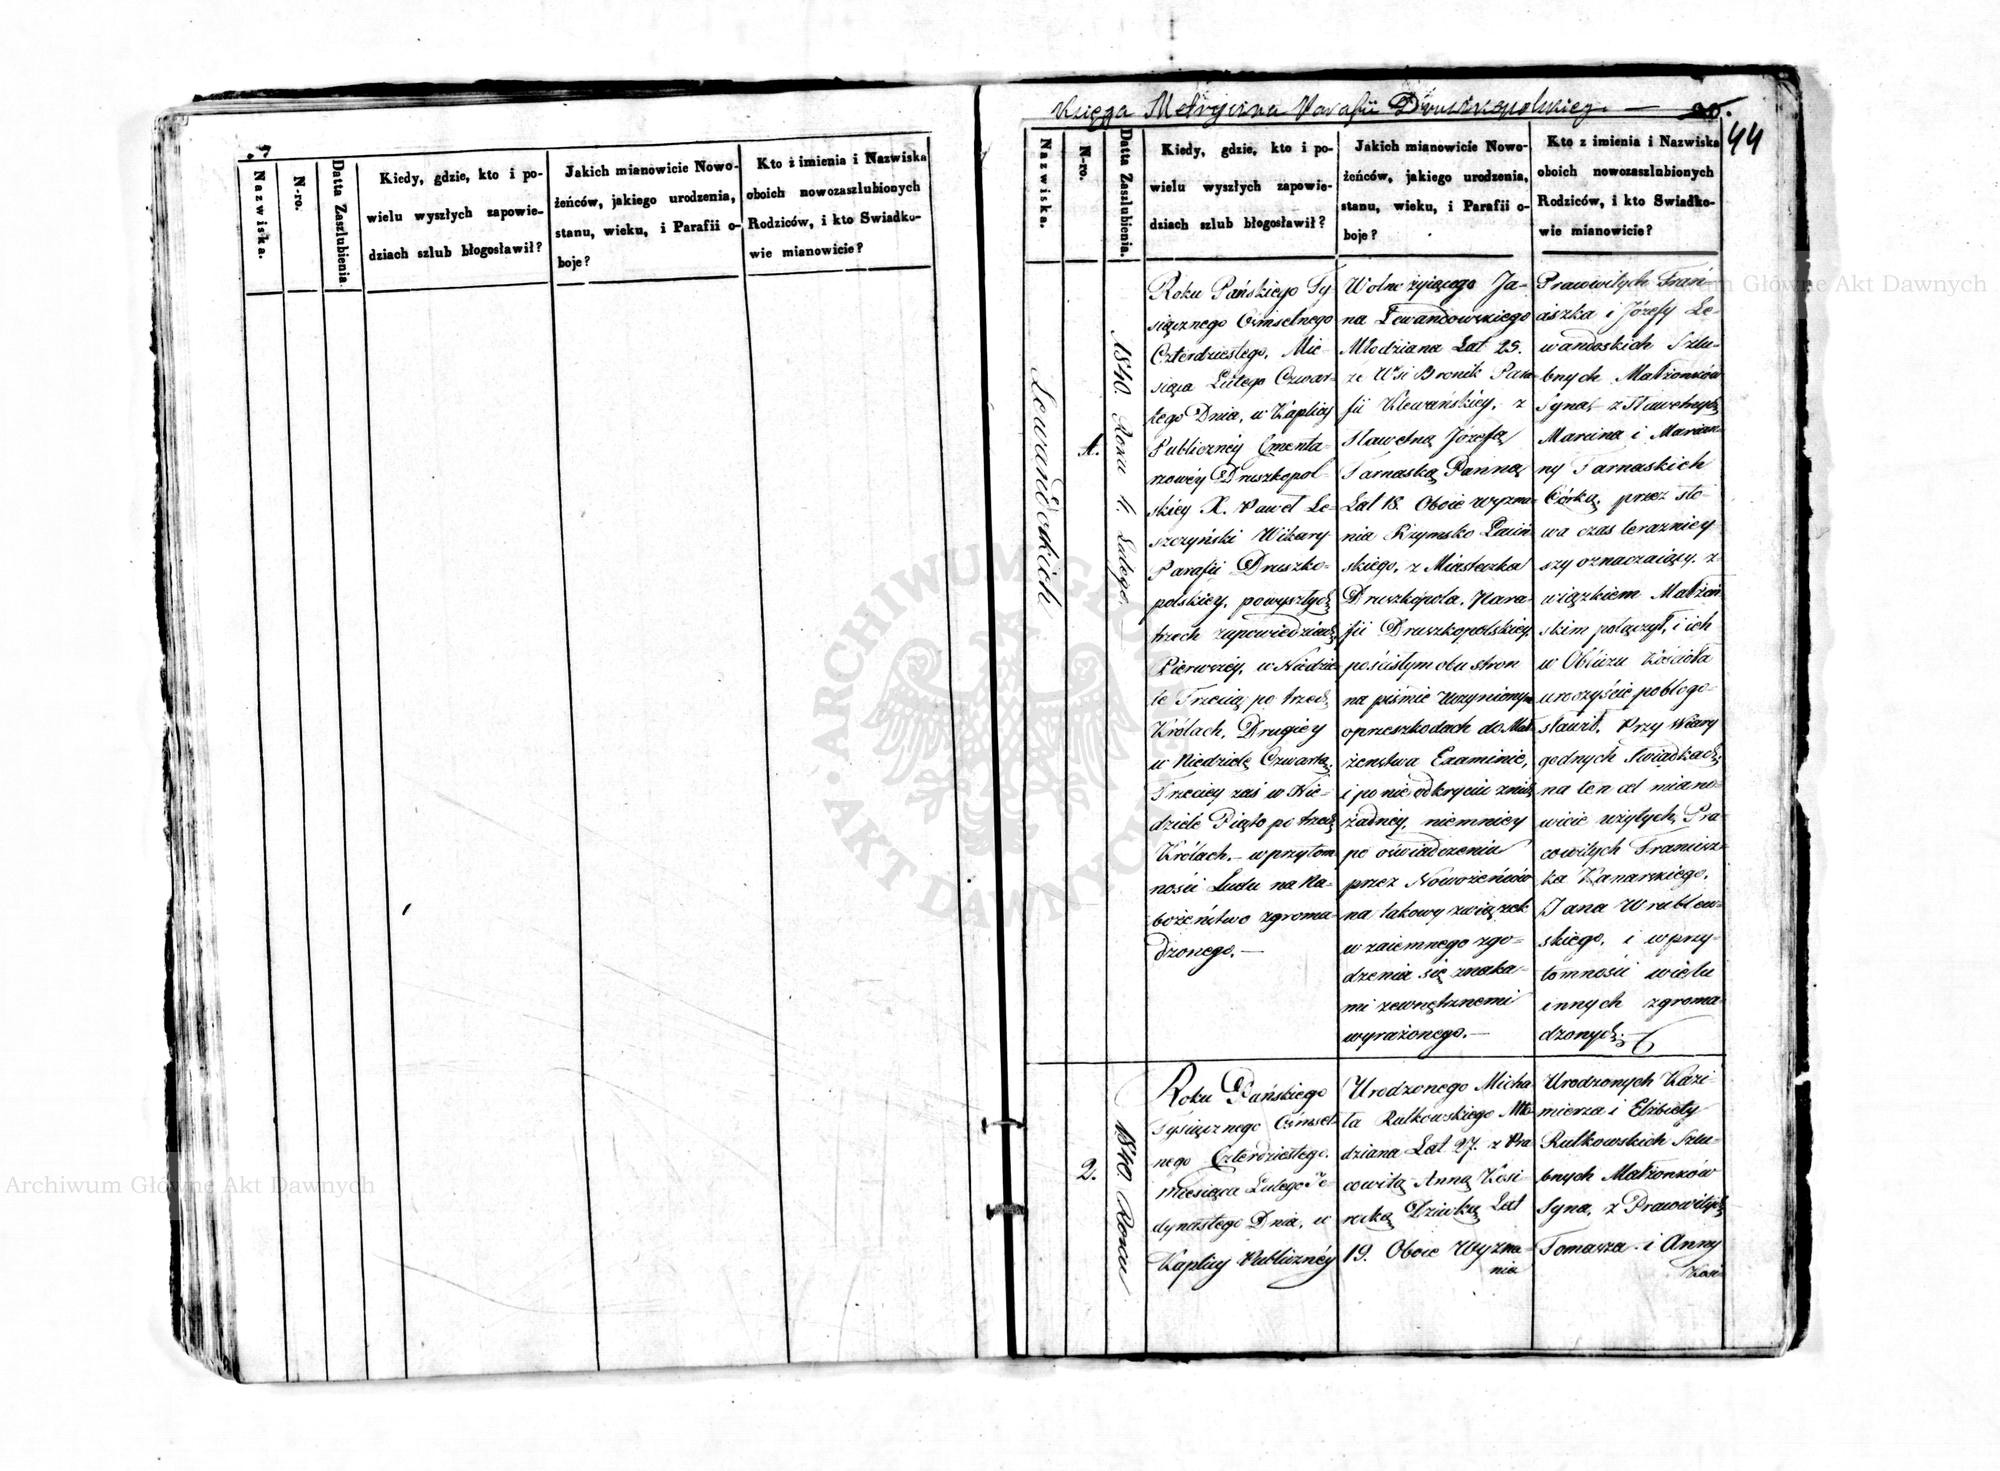 Nazwiska.
N-ro.
Datta Zaszlubienia.
Kiedy, gdzie, kto i po-
wielu wyszłych zapowie-
dziach szlub błogosławił?
Jakich mianowicie Nowo-
żeńców, jakiego urodzenia,
stanu, wieku, i Parafii o-
boje?
Kto z imienia i Nazwiska
oboich nowozaszlubionych
Rodziców, i kto Swiadko-
wie mianowicie?
Księga Metryczna Parafii Druszkopolskiey. —
44
Nazwiska.
N-ro.
Datta Zaszlubienia.
Kiedy, gdzie, kto i po-
wielu wyszłych zapowie-
dziach szlub błogosławił?
Jakich mianowicie Nowo-
żeńców, jakiego urodzenia,
stanu, wieku, i Parafii o-
boje?
Kto z imienia i Nazwiska
oboich nowozaszlubionych
Rodziców, i kto Swiadko-
wie mianowicie?
Lewandoskich
1.
1840. Roku 4. Lutego.
Roku Pańskiego Ty-
siącznego Ośmsetnego
Czterdziestego, Mie-
siąca Lutego Czwar-
tego Dnia, w Kaplicy
Publiczney Cmenta-
rzowéy Druszkopol-
skiey X. Paweł Le-
szczyński Wikary
Parafii Druszko-
polskiey, powyszłych
trzech zapowiedziach
Pierwszéy, w Niedzie-
le Trzecią po trzech
Królach, Drugiey
w Niedzielę Czwartą,
Trzeciey zaś w Nie-
dziele Piąto po trzech
Królach. — w przytom-
ności Ludu na Na-
bożeństwo zgroma-
dzonego. —
Wolno żyiącego Ja-
na Lewandowskiego
Młodziana Lat 25.
ze Wsi Bronik Para-
fii Klewańskiey, z
Sławetną Józefą
Tarnaską Panną
Lat 18. Oboie wyzna-
nia Rzymsko Łaciń-
skiego, z Miasteczka
Druszkopola, Para-
fii Druszkopolskiey,
pościsłym obu stron
na piśmie Uczynionym
oprzeszkodach do Mał-
żeństwa Examinie,
i po nie odkryciu zniich
żadney, niemniey
po oświadczeniu
przez Nowożeńców
na takowy związek
wzaiemnego zgo-
dzenia się znaka-
mi zewnętrznemi
wyrażonego. —
Pracowitych Fran-
ciszka i Józefy Le-
wandoskich Szlu-
bnych Małżonków
Syna, z Sławetnych
Marcina i Marian-
ny Tarnaskich
Córką, przez sło-
wa czas teraźniey-
szy oznaczaiący, z-
wiązkiem Małżeń-
skim połączył, i ich
w Obliczu Kościoła
uroczyście pobłogo-
sławił, Przy Wiary
godnych Swiadkach,
na ten akt miano-
wicie użytych, Pra-
cowitych Francisz-
ka Kanarskiego,
Jana Wrublew-
skiego, i w przy-
tomności wielu
innych zgroma-
dzonych.
2.
1840. Roku
Roku Pańskiego
Tysiącznego Ośmset-
nego Czterdziestego.
miesiąca Lutego Je-
dynastego Dnia, w
Kaplicy Publicznéy
Urodzonego Micha-
ła Rutkowskiego Mło-
dziana Lat 27. z Pra-
cowitą Anną Kosi-
rocką Dziwką Lat
19. Oboie Wyzna-
nia
Urodzonych Kazi-
mierza i Elżbiety
Rutkowskich Szlu-
bnych Małżonków
Syna, z Pracowitych
Tomasza i Anny
Kosi-
Archiwum Główne Akt Dawnych
Archiwum Główne Akt Dawnych
ARCHIWUM GŁÓWNE AKT DAWNYCH